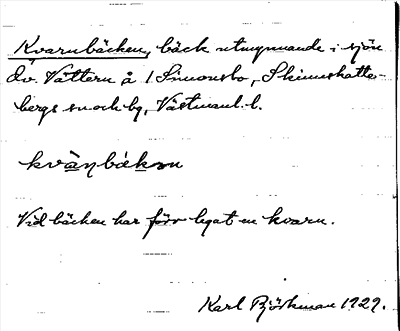 Kvarnbäcken, bäck utmynnande i sjön
Öv. Vättern å 1 Simonsbo, Skinnskatte-
bergs sn och by, Västmanl. l.
kvàn̥bɛkən
Vid bäcken har förr legat en kvarn.
Karl Björkman 1929.